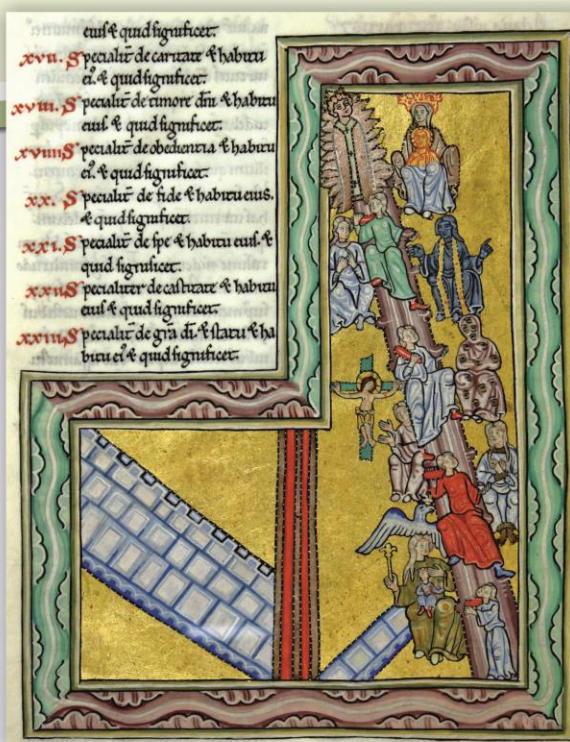 eius & quid significet.
xvii. Specialit̄ de caritate & habitu
ei᾿. & quid significet.
xviii. Specialit̄ de timore dn̄i & habitu
eius. & quid significet.
xviiii Specialit̄ de obedientia & habitu
ei᾿. & quid significet.
xx. Specialit̄ de fide & habitu eius.
& quid significet.
xxi. Specialit̄ de spe & habitu eius. &
quid significet.
xxii Specialiter de castitate & habitu
eius & quid significet.
xxiii Specialit̄ de gr̄a dī. & statu & ha
bitu ei᾿ & quid significet.